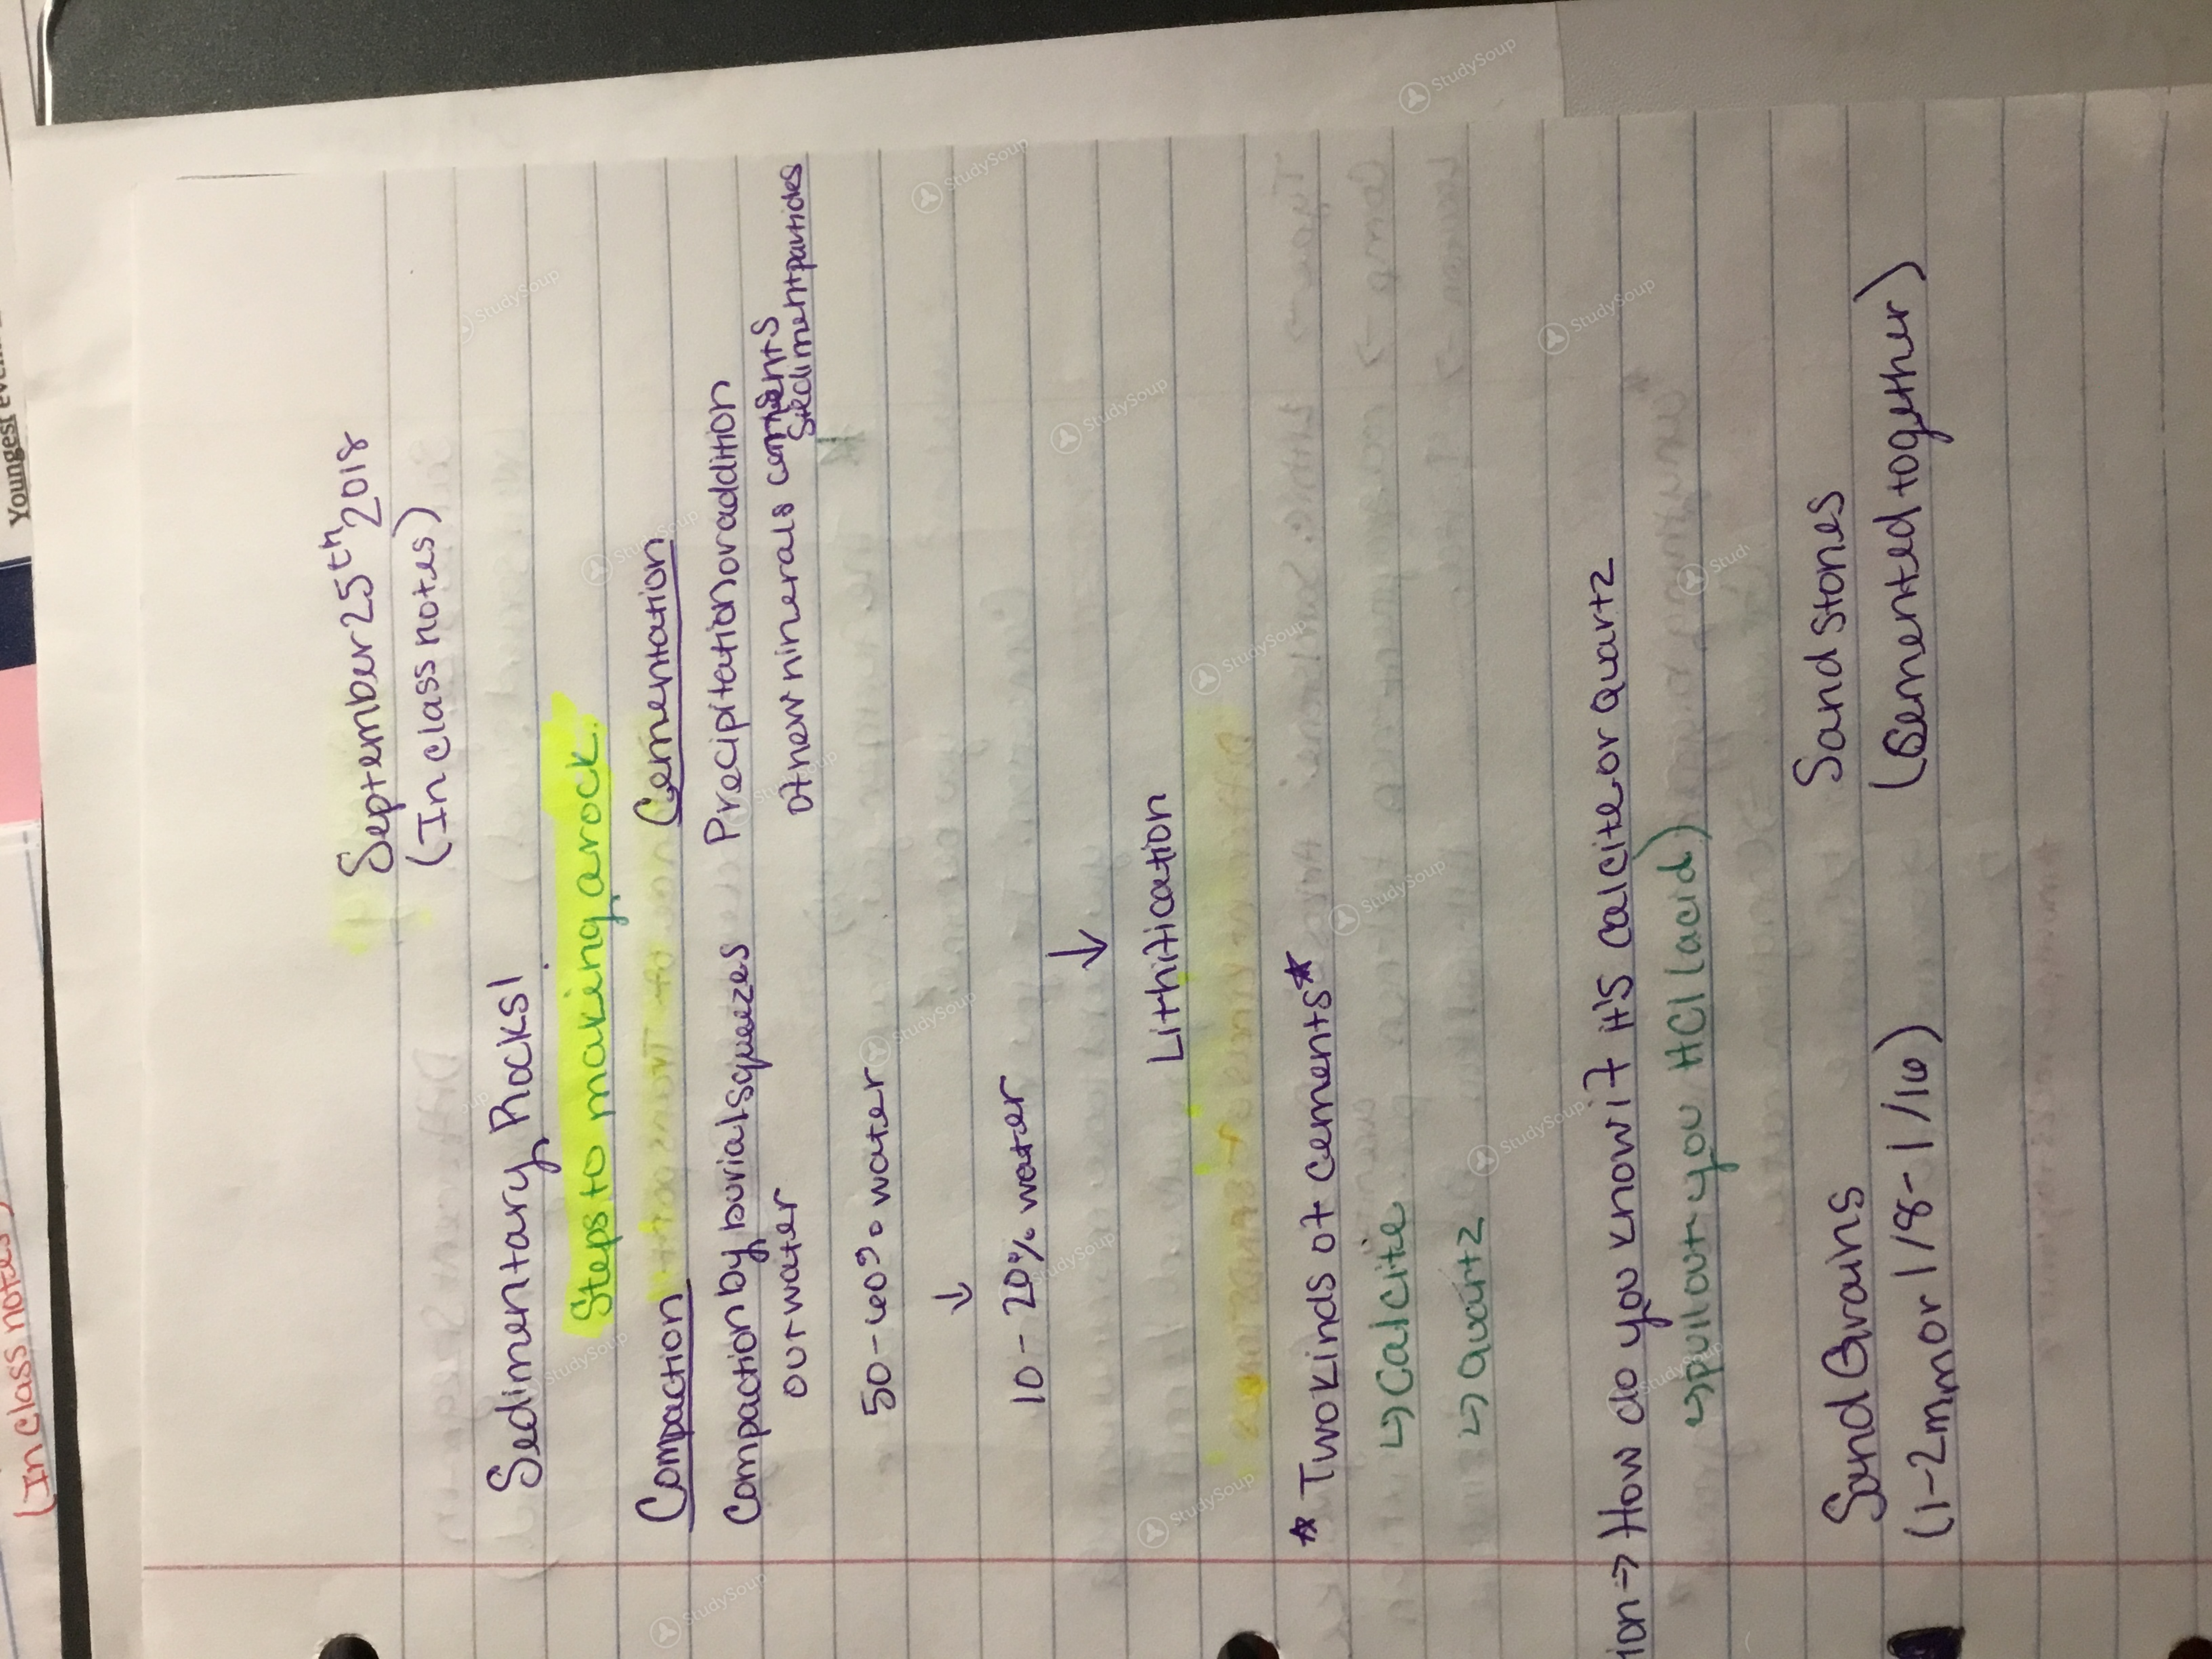 September 25th 2018
(In class notes)
Sedimentary Rocks!
Steps to making a rock.
Compaction
Cementation
Compaction by burial squeezes
out water
Precipitation or addition
of new ninerals cements
sediment particles
50-60% water
↓
10-20% water
↓
Lithification
* Two kinds of cements*
↳ Calcite
↳ Quartz
ion → How do you know if it's calcite or quartz
↳ pull out you HCl (acid)
Sand Grains
(1-2mm or 1/8-1/16)
Sand Stones
(Cemented together)
(In class notes)
Youngest
StudySoup